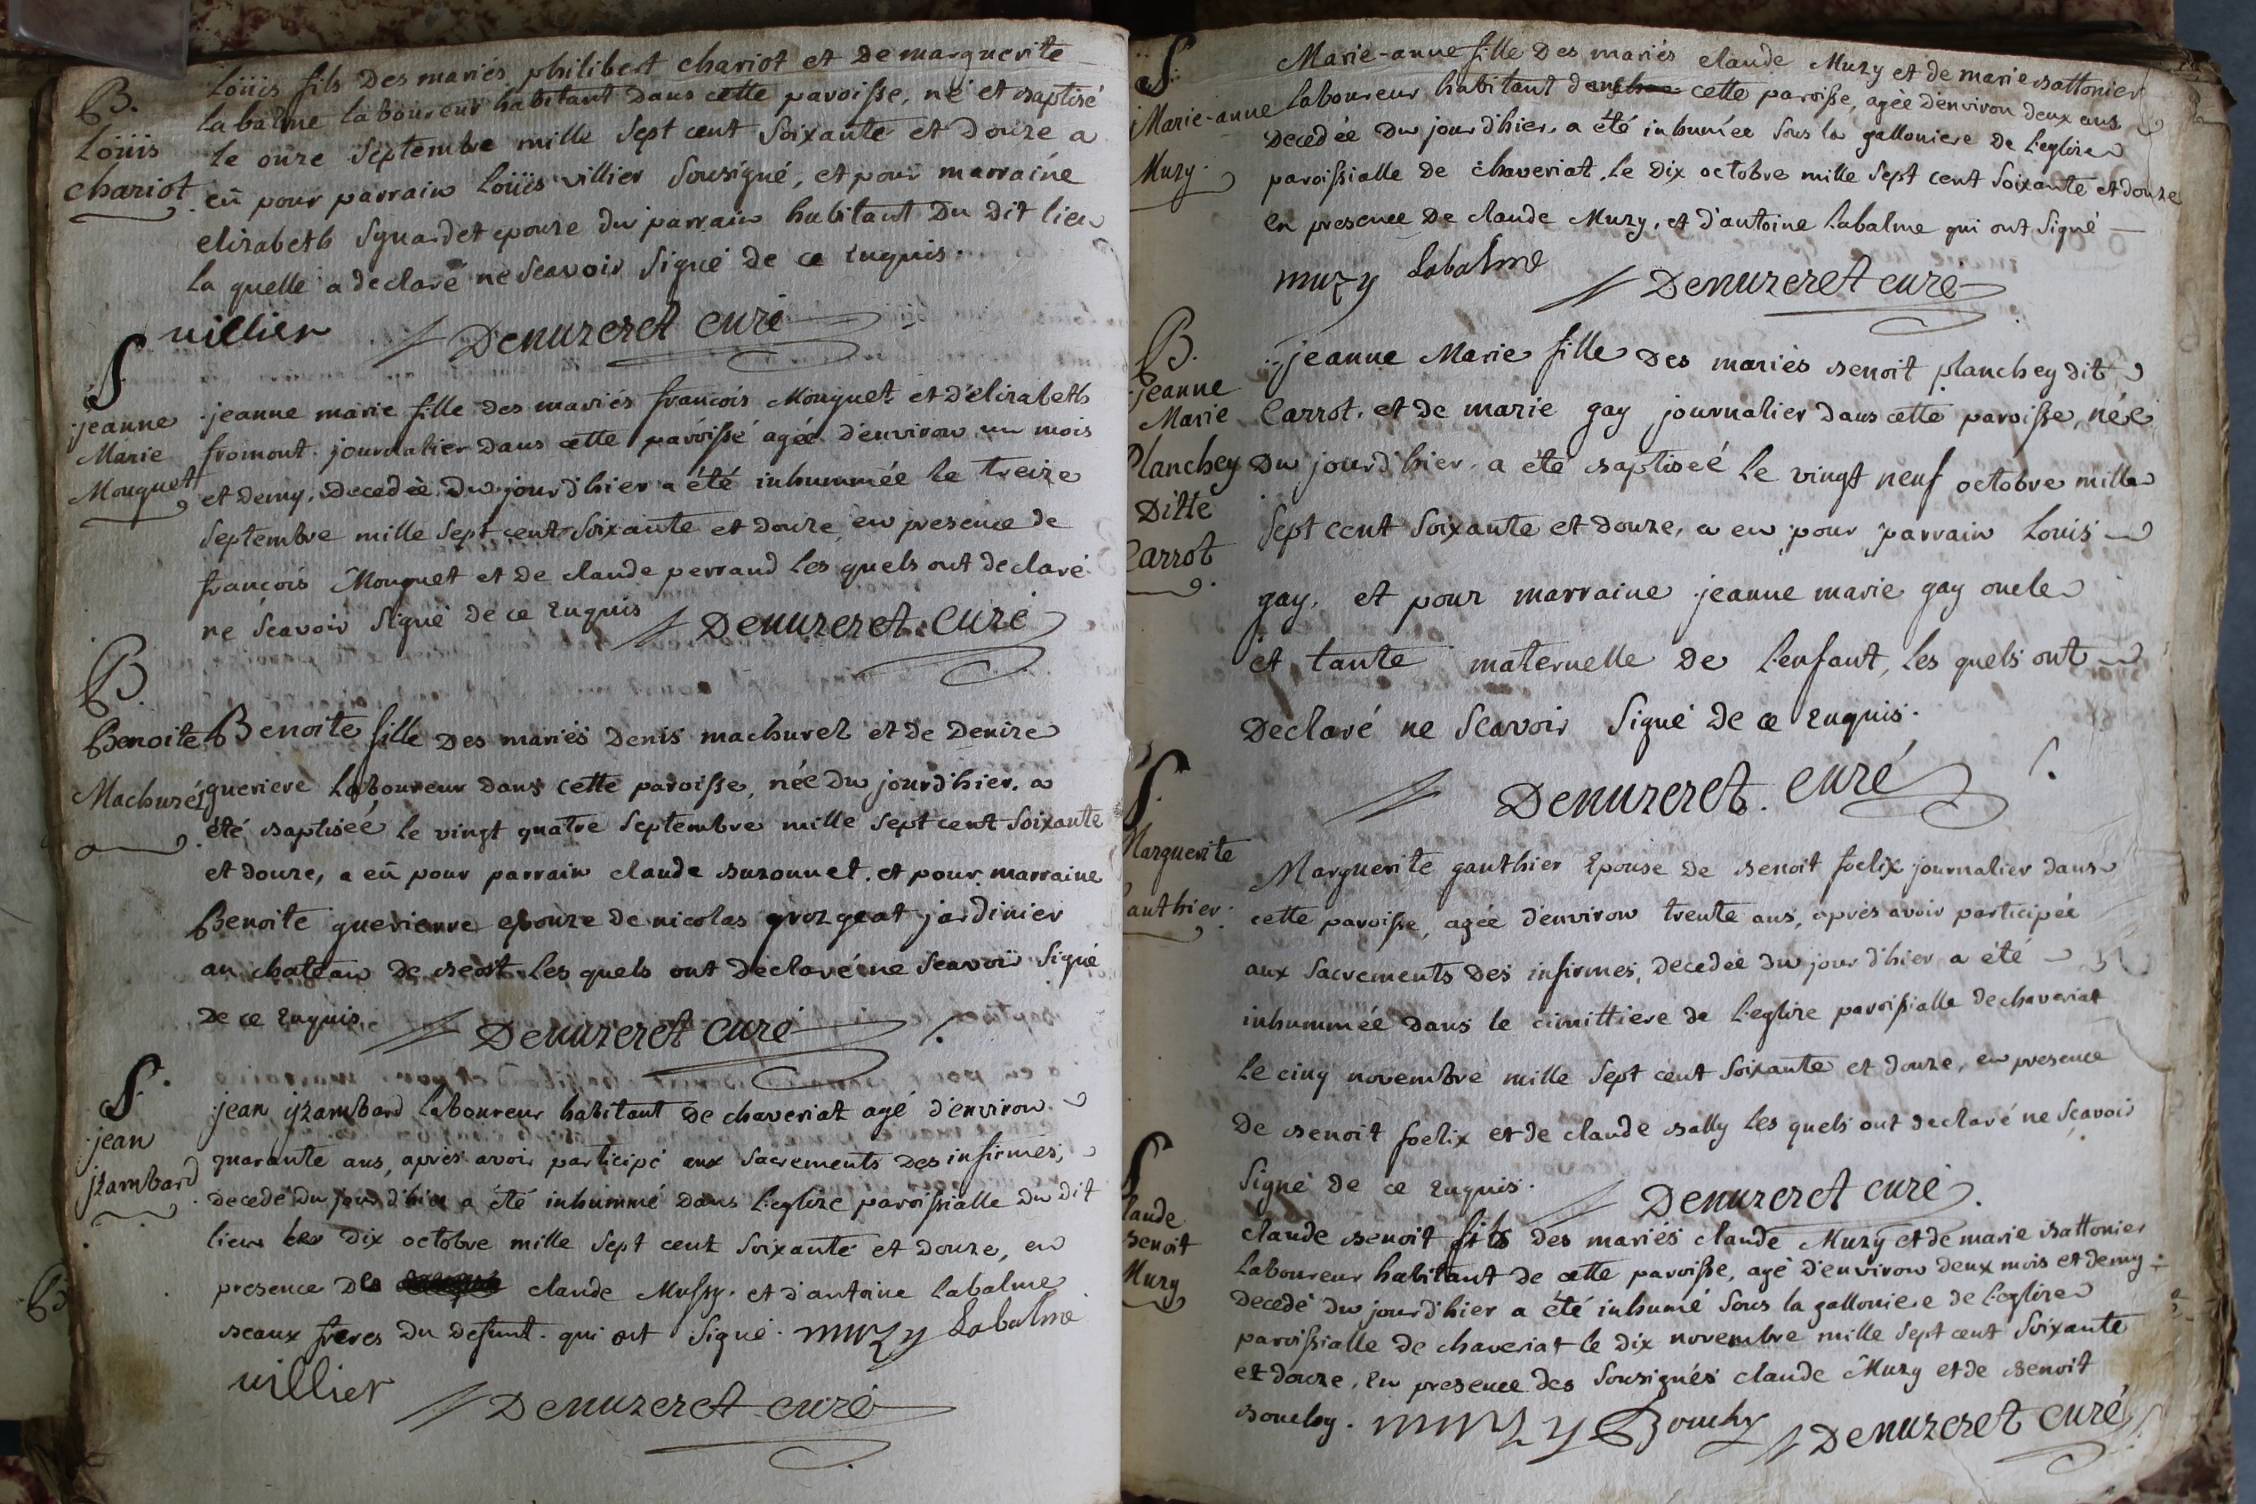 B.
Loüis
chariot
Loüis fils Des mariés philibert chariot et De marguerite
labalme laboureur habitant dans cette paroisse, né et baptisé
le onze Septembre mille Sept cent Soixante et douze a
eü pour parrain Loüis villier Sousigné, et pour marraine
elizabeth Syuardet epouze du parrain habitant Du Dit lieu
la quelle a declaré ne Scavoir Signé de ce Enquis.
villier Denuzeret curé
S
jeanne
Marie
Monguet
jeanne marie fille des mariés francois Monguet et d'elizabeth
fromont journalier dans cette paroisse agée d'environ un mois
et demy, Decedée Du jour d'hier a été inhummée le treize
Septembre mille Sept cent Soixante et douze, en presence de
francois Monguet et de claude perrand Les quels ont declaré
ne Scavoir Signé de ce Enquis Denuzeret. curé
B
Benoite
Machurel
Benoite fille Des mariés Denis machurel et de Denize
gueriere Laboureur dans cette paroisse, née Du jour d'hier, a
été baptiseé le vingt quatre Septembre mille Sept cent Soixante
et douze, a eü pour parrain claude buzonnet. et pour marraine
Benoite guerienne epouze de nicolas grozgeat jardinier
au chateau De beost Les quels ont declaré ne Scavoir Signé
De ce Enquis. Denuzeret curé
S.
jean
jzambard
jean jzambard Laboureur habitant De chaveriat agé d'environ
quarante ans, après avoir participé aux Sacrements Des infirmes,
decedé Du jour d'hier a été inhummé Dans L'eglize paroissialle Du dit
lieu Le Dix octobre mille Sept cent Soixante et douze, en
presence De claude Mussy. et d'antoine labalme
beaux freres Du defunt. qui ont Signé. muzy Labalme
villier Denuzeret curé
S
Marie-anne
Muzy.
Marie-anne fille Des mariés claude Muzy et de marie battonier
Laboureur habitant dans cette paroisse, agée d'environ deux ans
Decedée Du jour d'hier, a été inhumée Sous la galloniere De L'eglize
paroissialle de chaveriat, Le Dix octobre mille Sept cent Soixante et douze
en presence De claude Muzy, et d'antoine Labalme qui ont Signé
muzy Labalme Denuzeret curé
B.
jeanne
Marie
Planchey
Ditte
Carrot
jeanne Marie fille Des mariés benoit planchey dit
Carrot. et de marie gay journalier dans cette paroisse, née
Du jour d'hier. a été baptiseé Le vingt neuf octobre mille
Sept cent Soixante et douze, a eu pour parrain Louis
gay, et pour marraine jeanne marie gay oncle
et tante maternelle De L'enfant, Les quels ont
Declaré ne Scavoir Signé De ce Enquis.
Denuzeret. curé
S.
Marguerite
gauthier.
Marguerite gauthier Epouse De benoit foelix journalier dans
cette paroisse, agée d'environ trente ans, après avoir participée
aux Sacrements Des infirmes, Decedée Du jour d'hier a été
inhummée dans le cimittiere de L'eglize paroissialle de chaveriat
Le cinq novembre mille Sept cent Soixante et douze, en presence
De benoit foelix et de claude bally Les quels ont declaré ne Scavoir
Signé De ce Enquis. Denuzeret curé.
S
Claude
benoit
Muzy
claude benoit fils Des mariés claude Muzy et de marie battonier
Laboureur habitant de cette paroisse, agé d'environ deux mois et demy
Decedé Du jour d'hier a été inhumé Sous la galloniere de L'eglize
paroissialle de chaveriat le dix novembre mille Sept cent Soixante
et douze, En presence des Sousignés claude Muzy et de benoit
bouchy. muzy Bouchy Denuzeret curé